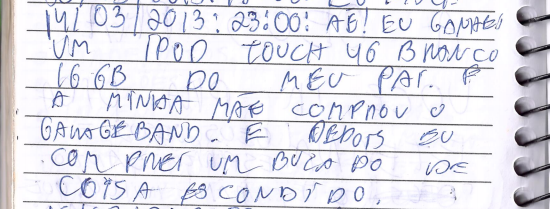 14/03/2013: 23:00: AE! EU GANHEI
UM IPOD TOUCH 4G BRANCO
16 GB DO MEU PAI. E
A MINHA MÃE COMPROU O
GARAGEBAND. E DEPOIS EU
COMPREI UM BUCADO DE
COISA ESCONDIDO.